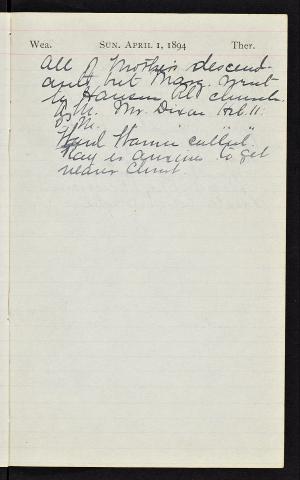 Wea. SUN. APRIL 1, 1894 Ther.
All of Mother's descend-
ants but Mary went
to Hansen All church.
A.M. Mr. Dixon Heb. 11.
P.M.
Warner called.
Ray is anxious to get
nearer Christ.